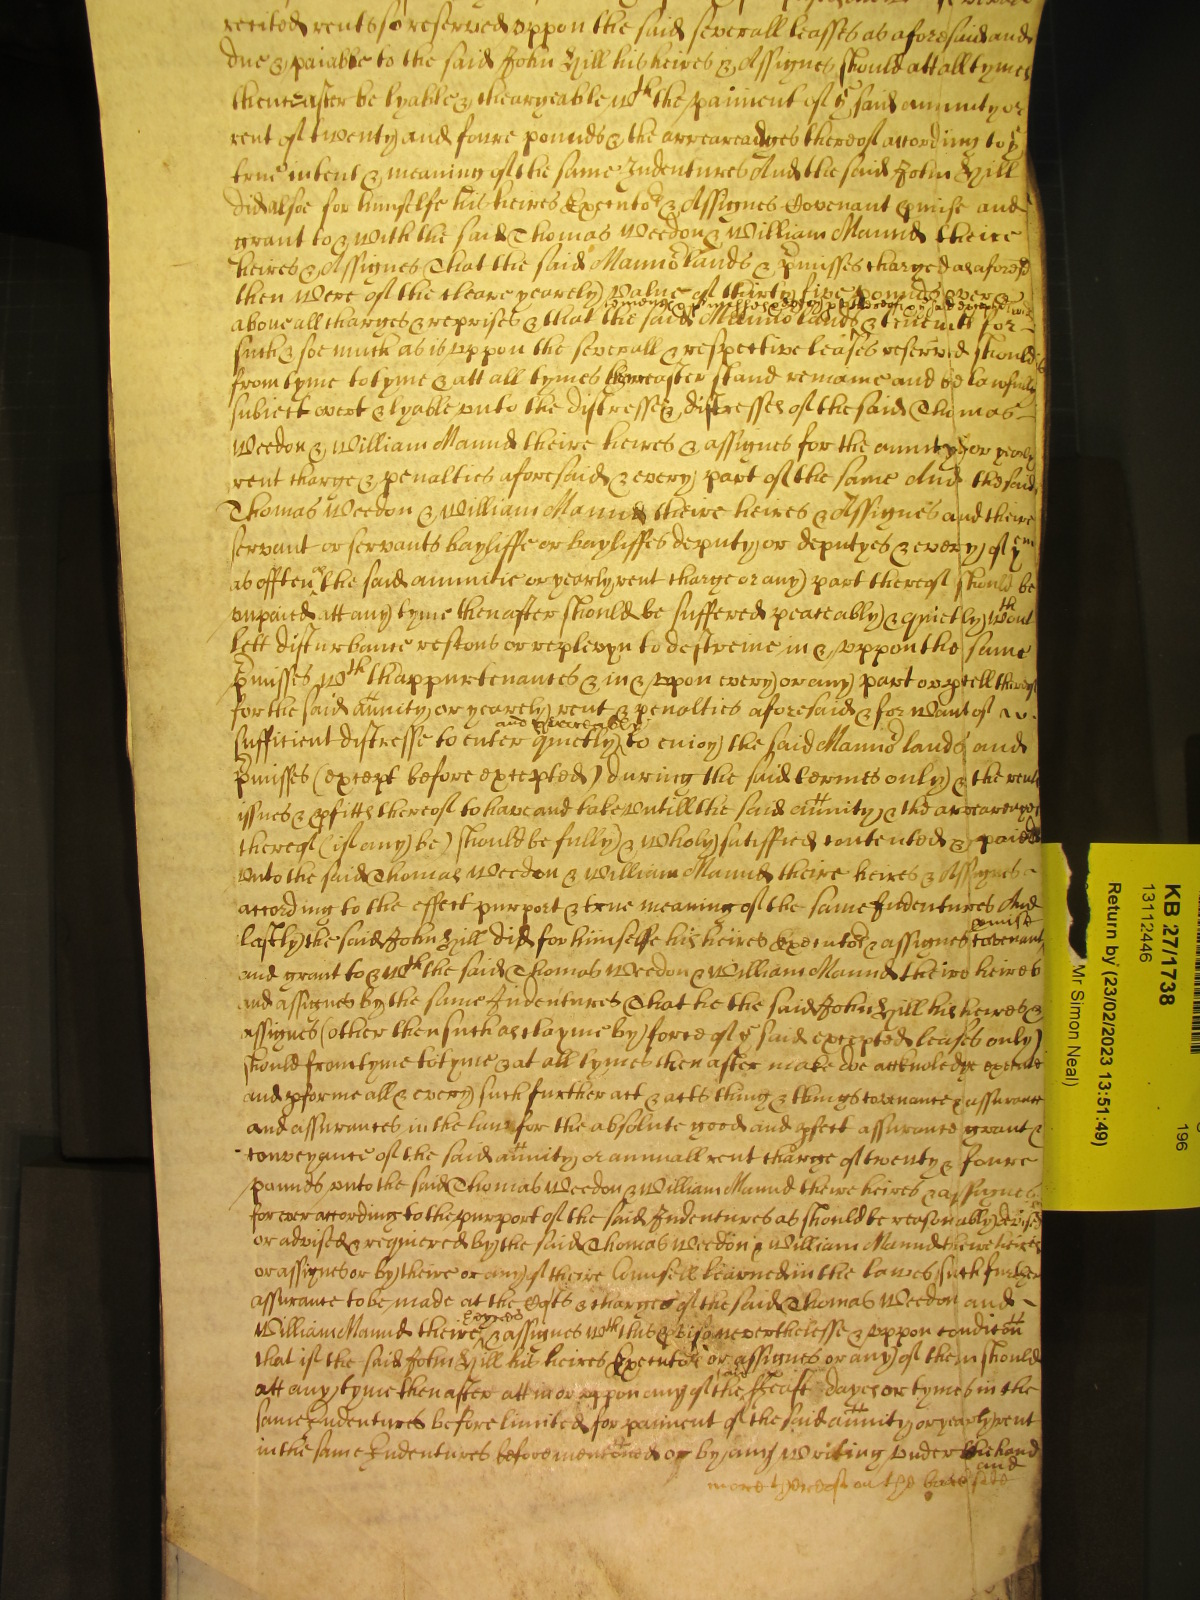 recited rents so reserved uppon the said severall leasses as aforesaid and
due & paiable to the said John Hill his heires & Assignes should att all tymes
thenceafter be lyable & chargeable wth the paiment of ye said annuity or
rent of twenty and foure pounds & the arrearadges thereof according to ye
true intent & meaning of the same Indentures And the said John Hill
did alsoe for himselfe his heires Executors & Assignes Covenant pmise and
grant to & with the said Thomas Weedon & William Maund theire
heires & Assignes That the said Mannor lands & pmisses charged as aforesd
then were of the cleare yearely value of thirty five pounds over &
above all charges & reprises & that the said Mannor lands & tenemts for
such & soe much as is uppon the severall & respective leases reserved should
from tyme to tyme & att all tymes thenceafter stand remaine and be lawfully
subiect overt & lyable unto the distresse & distresses of the said Thomas
Weedon & William Maund theire heires & assignes for the annuity or yearly
rent charge & penalties aforesaid & every part of the same And the said
Thomas Weedon & William Maund theire heires & Assignes and theire
servant or servants bayliffe or bayliffes deputy or deputyes & every of yem
as often as the said annuitie or yearly rent charge or any part thereof should be
unpaied att any tyme thenafter should be suffered peaceably & quietly wthout
lett disturbance rescous or replevyn to destreine in & uppon the same
pmisses wth thappurtenances & in & upon every or any part or pcell thereof
for the said annity or yearely rent & penalties aforesaid & for want of
and peaceably
sufficient distresse to enter quietly to enioy the said Mannor lands and
pmisses (except before excepted) during the said termes only & the rents
issues & pfitts thereof to have and take untill the said annity & the arrearages
thereof (if any be) should be fully & wholy satisfied contented & paied
unto the said Thomas Weedon & William Maund theire heires & Assignes
according to the effect purport & true meaning of the same Indentures And
pmise
lastly the said John Hill did for himselfe his heires Executors & assignes covenant
and grant to & wth the said Thomas Weedon & William Maund theire heires
and assignes by the same Indentures That he the said John Hill his heires &
assignes (other then such as clayme by force of ye said excepted leases only)
should from tyme to tyme & at all tymes then after make doe acknoledge execute
and pforme all & every such further act & acts thing & things covenance & assurance
and assurances in the law for the absolute good and pfect assurance grant &
conveyance of the said annity or annuall rent charge of twenty & foure
pounds unto the said Thomas Weedon & William Maund theire heires & assignes
for ever according to the purport of the said Indentures as should be reasonably devised
or advised & requiered by the said Thomas Weedon & William Maund theire heires
or assignes or by theire or any of theire Counsell learned in the lawes such further
assurance to be made at the Costs & charges of the said Thomas Weedon and
heyres
William Maund theire & assignes wth this pviso neverthelesse & uppon condicon
that if the said John Hill his heires Executors or assignes or any of them should
att any tyme thenafter att in or uppon any of the said feast dayes or tymes in the
same Indentures before limited for paiment of the said annity or yearly rent
in the same Indentures before menconed or by any writing under his hand
and
more thereof on the back side
KB 27/1738
13112446
Return by (23/02/2023 13:51:49)
Mr Simon Neal)
196